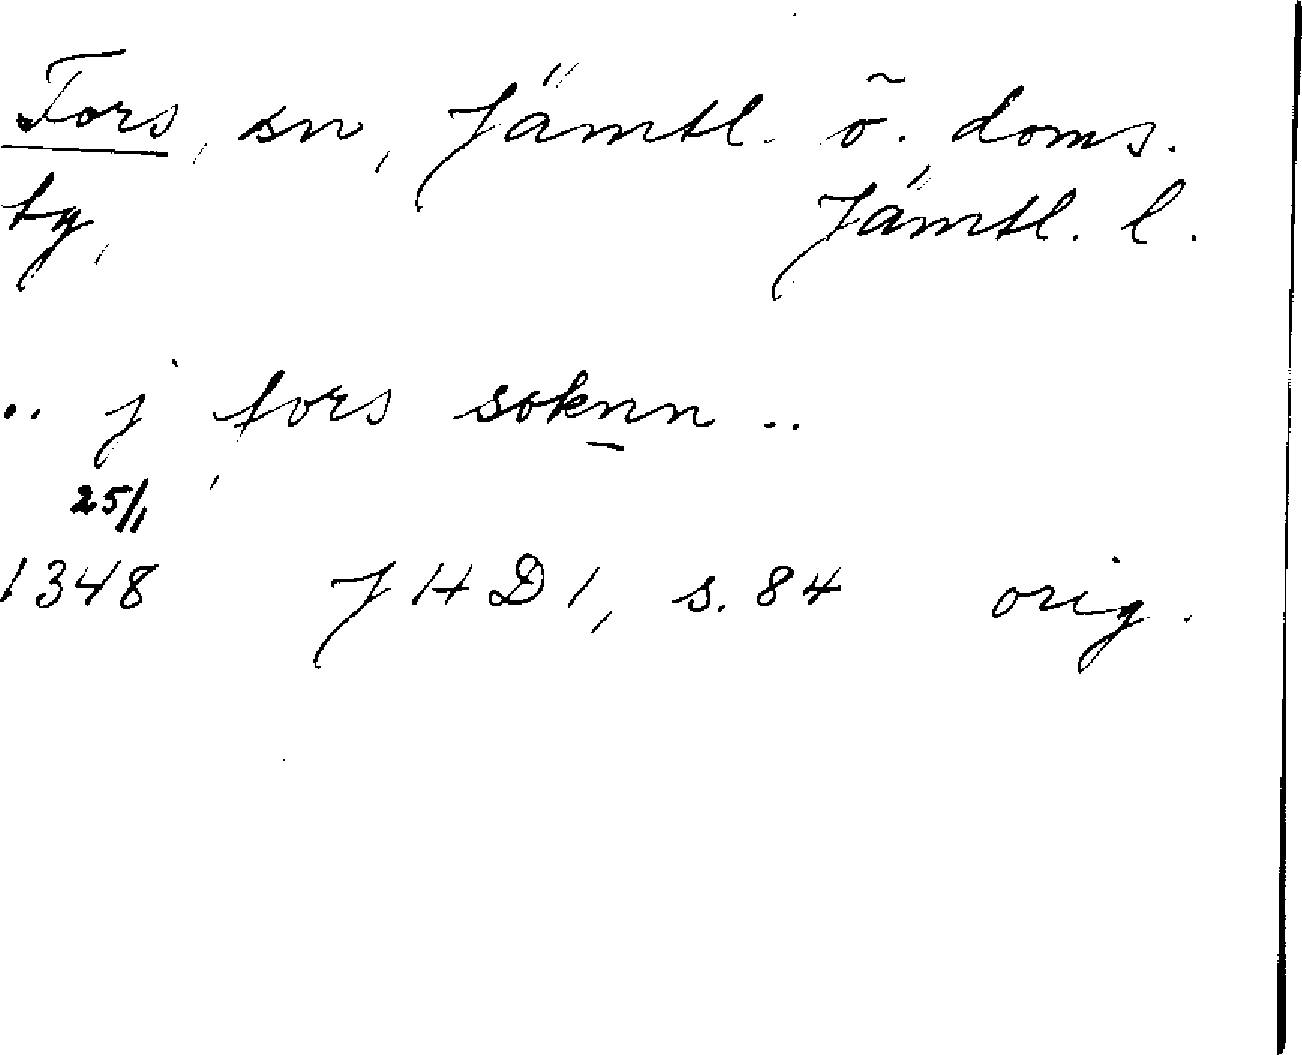 Fors, sn, Jämtl. ö. doms.
by, Jämtl. l.
.. j fors soknn ..
25/1
1348 JHD 1, s. 84 orig.